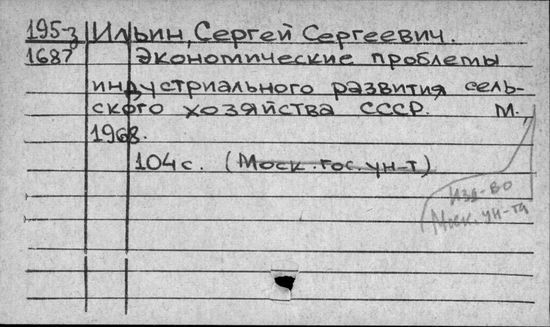 195-з Ильин, Сергей Сергеевич.
1687 Экономические проблемы
индустриального развития сель-
ского хозяйства СССР. М.,
1968.
104 с. (Моск. гос. ун-т)
Изд-во
Моск. ун-та